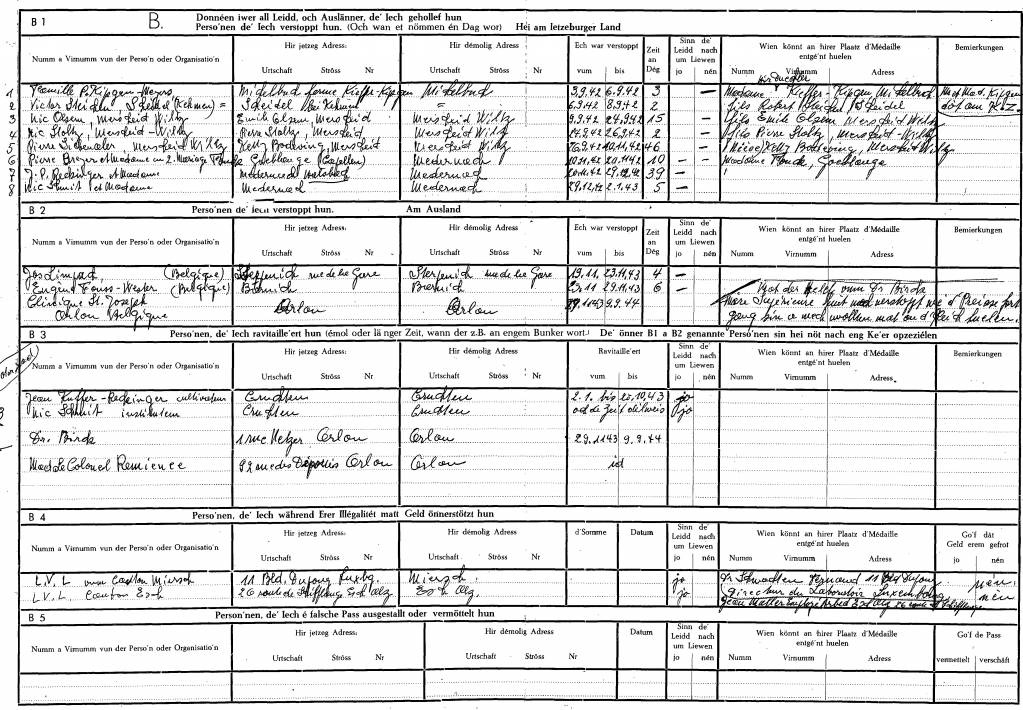 B 1 B. Donnéen iwer all Leidd, och Auslänner, de' Iech gehollef hun
Perso'nen de' Iech verstoppt hun. (Och wan et nömmen én Dag wor) Héi am letzeburger Land
Numm a Virnumm vun der Perso'n oder Organisatio'n
Hir jetzeg Adress:
Urtschaft Ströss Nr
Hir démolig Adress:
Urtschaft Ströss Nr
Ech war verstoppt
vum bis
Zeit an Dég
Sinn de' Leidd nach um Liewen
jo nén
Wien könnt an hirer Plaatz d'Médaille entgé'nt huelen
Numm Virnumm Adress
Bemierkungen
1 Famille P. Kipgen-Meyers Midelbud ferme Kieffer-Kipgen Midelbud 3.9.42 6.9.42 3 — Madame Kieffer-Kipgen Midelbud Mad. Kipgen
2 Victor Steichen Scheidel (Kehmen) = Scheidel bei Kehmen " 6.9.42 8.9.42 2 — fils Robert Scheidel dót am K.Z.
3 Nic Olsem, Merscheid Wiltz Emile Olsem, Merscheid Merscheid Wiltz 9.9.42 24.9.42 15 — fils Emile Olsem Merscheid Wiltz
4 Nic Stoltz, Merscheid-Wiltz Pierre Stoltz, Merscheid Merscheid Wiltz 24.9.42 26.9.42 2 — fils Pierre Stoltz, Merscheid-Wiltz
5 Pierre Merscheid Wiltz Ketty Bodeving, Merscheid Merscheid Wiltz 26.9.42 10.11.42 46 — (Nièce) Ketty Bodeving, Merscheid Wiltz
6 Pierre Breyer et Madame en 2. Mariage Funck Goeblange (Capellen) Medernach 10.11.42 20.11.42 10 — — Madame Funck, Goeblange
7 J.P. Reckinger et Madame Medernach Medernach 20.11.42 29.12.42 39 —
8 Nic Schmit et Madame Medernach Medernach 29.12.42 2.1.43 5 —
B 2 Perso'nen de' Iech verstoppt hun. Am Ausland
Numm a Virnumm vun der Perso'n oder Organisatio'n
Hir jetzeg Adress:
Urtschaft Ströss Nr
Hir démolig Adress:
Urtschaft Ströss Nr
Ech war verstoppt
vum bis
Zeit an Dég
Sinn de' Leidd nach um Liewen
jo nén
Wien könnt an hirer Plaatz d'Médaille entgé'nt huelen
Numm Virnumm Adress
Bemierkungen
Jos Limpach (Belgique) Sterpenich rue de la Gare Sterpenich rue de la Gare 19.11. 23.11.43 4 —
Eugène Faus-Wester (Belgique) Barnich Barnich 23.11 29.11.43 6 — Mat der Hëllef vum Dr Birck
Clinique St. Joseph
Arlon Belgique Arlon Arlon 29.11.43 9.9.44 Mère Supérieure huet
B 3 Perso'nen, de' Iech ravitaille'ert hun (émol oder länger Zeit, wann der z.B. an engem Bunker wort.) De' önner B1 a B2 genannte Perso'nen sin hei nöt nach eng Ke'er opzezielen
Numm a Virnumm vun der Perso'n oder Organisatio'n
Hir jetzeg Adress:
Urtschaft Ströss Nr
Hir démolig Adress:
Urtschaft Ströss Nr
Ravitaille'ert
vum bis
Sinn de' Leidd nach um Liewen
jo nén
Wien könnt an hirer Plaatz d'Médaille entgé'nt huelen
Numm Virnumm Adress
Bemierkungen
Jean Kuffer-Reckinger cultivateur Cruchten Cruchten 2.1. bis 22.10.43 jo
Nic Schmit instituteur Cruchten Cruchten jo
Dr. Birck 1 rue Netzer Arlon Arlon 29.11.43 9.9.44
Mad. Le Colonel Remience 92 rue des Déportés Arlon Arlon id
B 4 Perso'nen, de' Iech während Erer Illégalitét matt Geld önnerstötzt hun
Numm a Virnumm vun der Perso'n oder Organisatio'n
Hir jetzeg Adress:
Urtschaft Ströss Nr
Hir démolig Adress:
Urtschaft Ströss Nr
d'Somme Datum
Sinn de' Leidd nach um Liewen
jo nén
Wien könnt an hirer Plaatz d'Médaille entgé'nt huelen
Numm Virnumm Adress
Go'f dât Geld erem gefrot
L.V.L vum Canton Miersch 11 Bld. Dupong Luxbg. Miersch. jo Dr Schwachtgen Fernand 11 Bld Dupong nén.
L.V.L. Canton Esch 26 route de Schifflange Esch Alz. Esch Alz. jo Directeur du Laboratoire Luxembourg nén
B 5 Perso'nen, de' Iech é falsche Pass ausgestallt oder vermöttelt hun
Numm a Virnumm vun der Perso'n oder Organisatio'n
Hir jetzeg Adress:
Urtschaft Ströss Nr
Hir démolig Adress:
Urtschaft Ströss Nr
Datum
Sinn de' Leidd nach um Liewen
jo nén
Wien könnt an hirer Plaatz d'Médaille entgé'nt huelen
Numm Virnumm Adress
Go'f de Pass
vermettelt verschäft